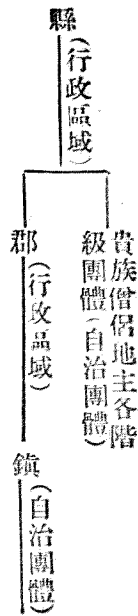 縣(行政區域)
貴族僧侶地主各階
級團體(自治團體)
郡(行政區域)
鎮(自治團體)